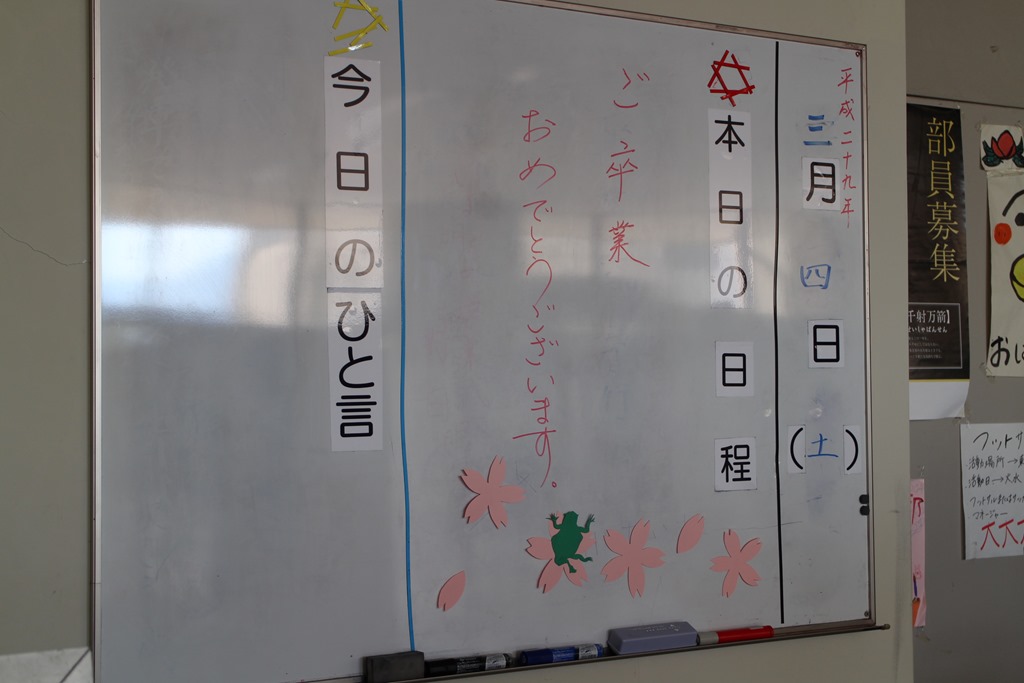 平成二十九年
三月四日(土)
本日の日程
ご卒業
おめでとうございます。
今日のひと言
部員募集
千射万箭】
おは
フットサ
活動場所→
活動日→大水
マネージャー
大大